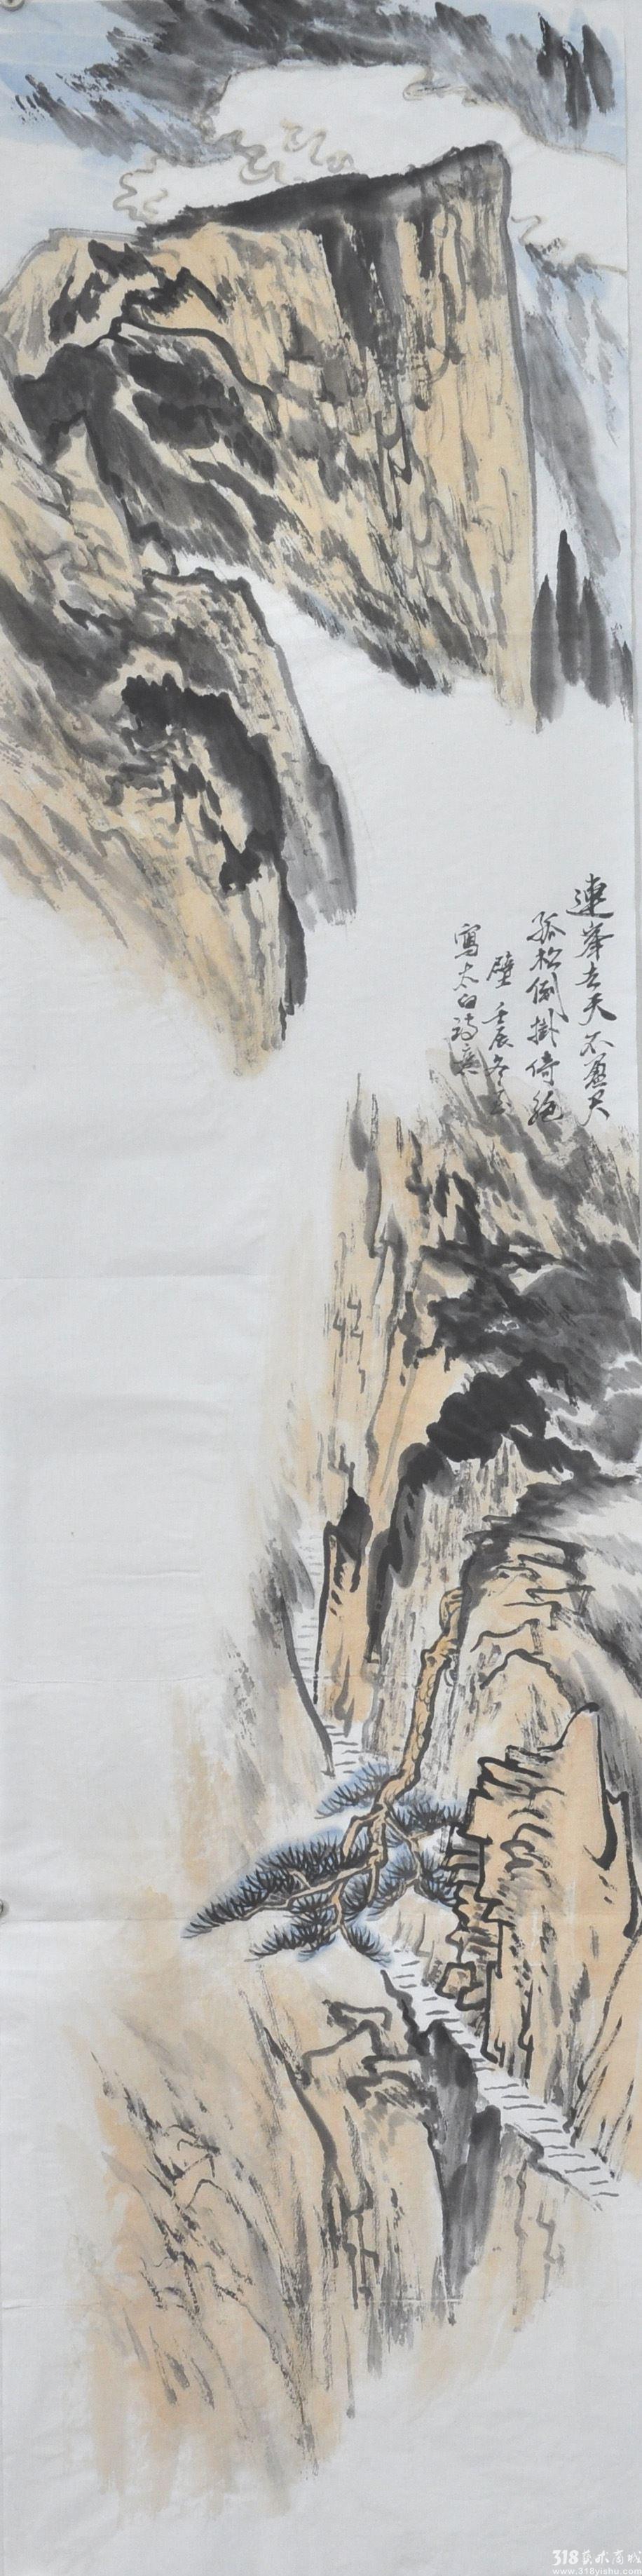 連峯去天不盈尺
孤松倒掛倚絶
壁 壬辰冬至
寫太白詩意
318艺术商城
www.318yishu.com